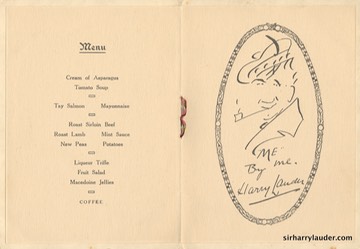 Menu
Cream of Asparagus
Tomato Soup
Tay Salmon Mayonnaise
Roast Sirloin Beef
Roast Lamb Mint Sauce
New Peas Potatoes
Liqueur Trifle
Fruit Salad
Macedoine Jellies
COFFEE
"ME"
By me.
Harry Lauder
sirharrylauder.com